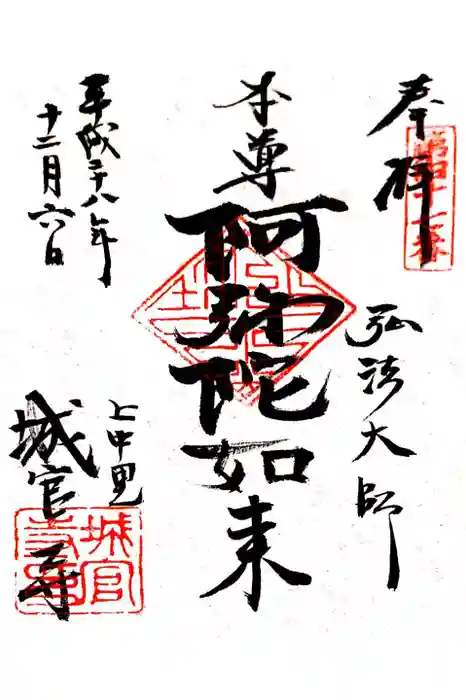 奉拝
第四十七番
弘法大師
本尊
阿弥陀如来
平成二十八年
十二月六日
上中里
城官寺
城官寺